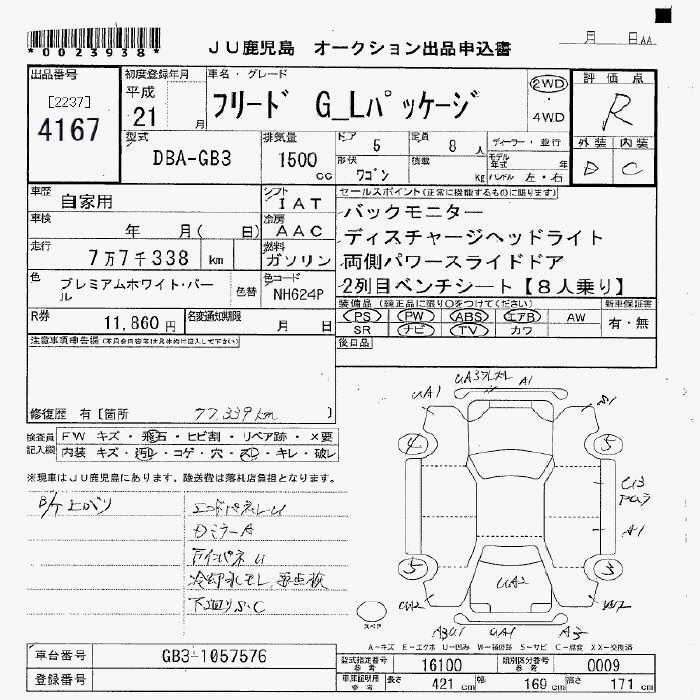 *0023938*
JU鹿児島 オークション出品申込書
月 日AA
出品番号
[2237]
4167
初度登録年月
平成
21 月
車名・グレード
フリード G_Lパッケージ
2WD
・
4WD
評価点
R
外装 内装
D C
型式
DBA-GB3
排気量
1500 cc
ドア
5
定員
8 人
ディーラー・並行
形状
ワゴン
積載
kg
モデル年式 年
ハンドル 左・右
車歴
自家用
シフト
IAT
セールスポイント(正常に機能するものに限ります)
バックモニター
ディスチャージヘッドライト
両側パワースライドドア
2列目ベンチシート【8人乗り】
車検
年 月( 日)
冷房
AAC
走行
7万7千338 km
燃料
ガソリン
色
プレミアムホワイト・パール
色替
色コード
NH624P
装備品(純正品に限り○をつけてください)
新車保証書
PS PW ABS エアB AW
SR ナビ TV カワ
有・無
R券
11,860 円
名変通知期限
月 日
後日品
注意事項申告欄
修復歴 有[箇所 77,339km ]
検査員
記入欄
FW キズ・飛石・ヒビ割・リペア跡・×要
内装 キズ・汚れ・コゲ・穴・スレ・キレ・破レ
※現車はJU鹿児島にあります。陸送費は落札店負担となります。
エンドパネルU
Dミラー A
下廻りS.C
UA1
A1
S1
4
5
A1
5
3
UA2
UA2
W2
UA1
スペア
A-キズ E-エクボ U-凹み W-補修跡 S-サビ C-腐食 XX-交換済
車台番号
GB3-1057576
登録番号
型式指定番号
参考
16100
類別区分番号
参考
0009
車庫証明用
参考
長さ
421 cm
幅
169 cm
高さ
171 cm